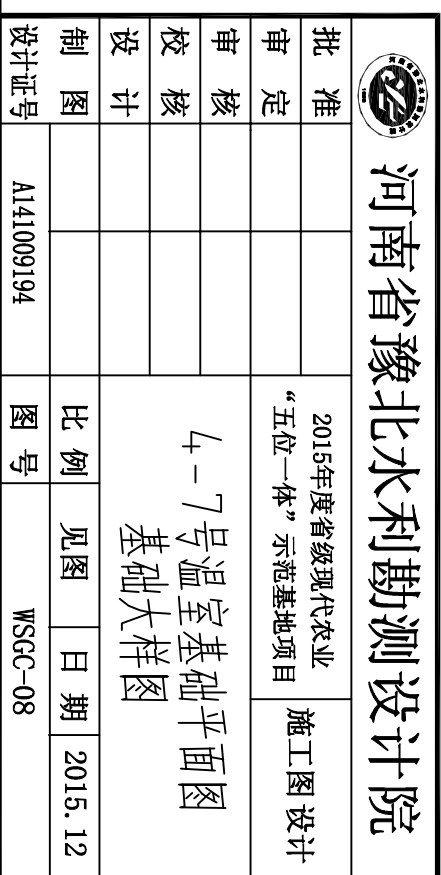 河南省豫北水利勘测设计院
批 准
2015年度省级现代农业
“五位一体”示范基地项目
施工图 设计
审 定
审 核
4-7号温室基础平面图
基础大样图
校 核
设 计
制 图
比 例
见图
日 期
2015.12
设计证号
A141009194
图 号
WSGC-08